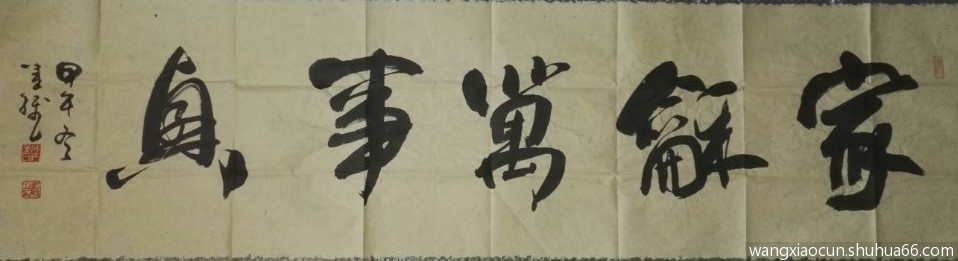 家龢萬事興
甲午冬
wangxiaocun.shuhua66.com